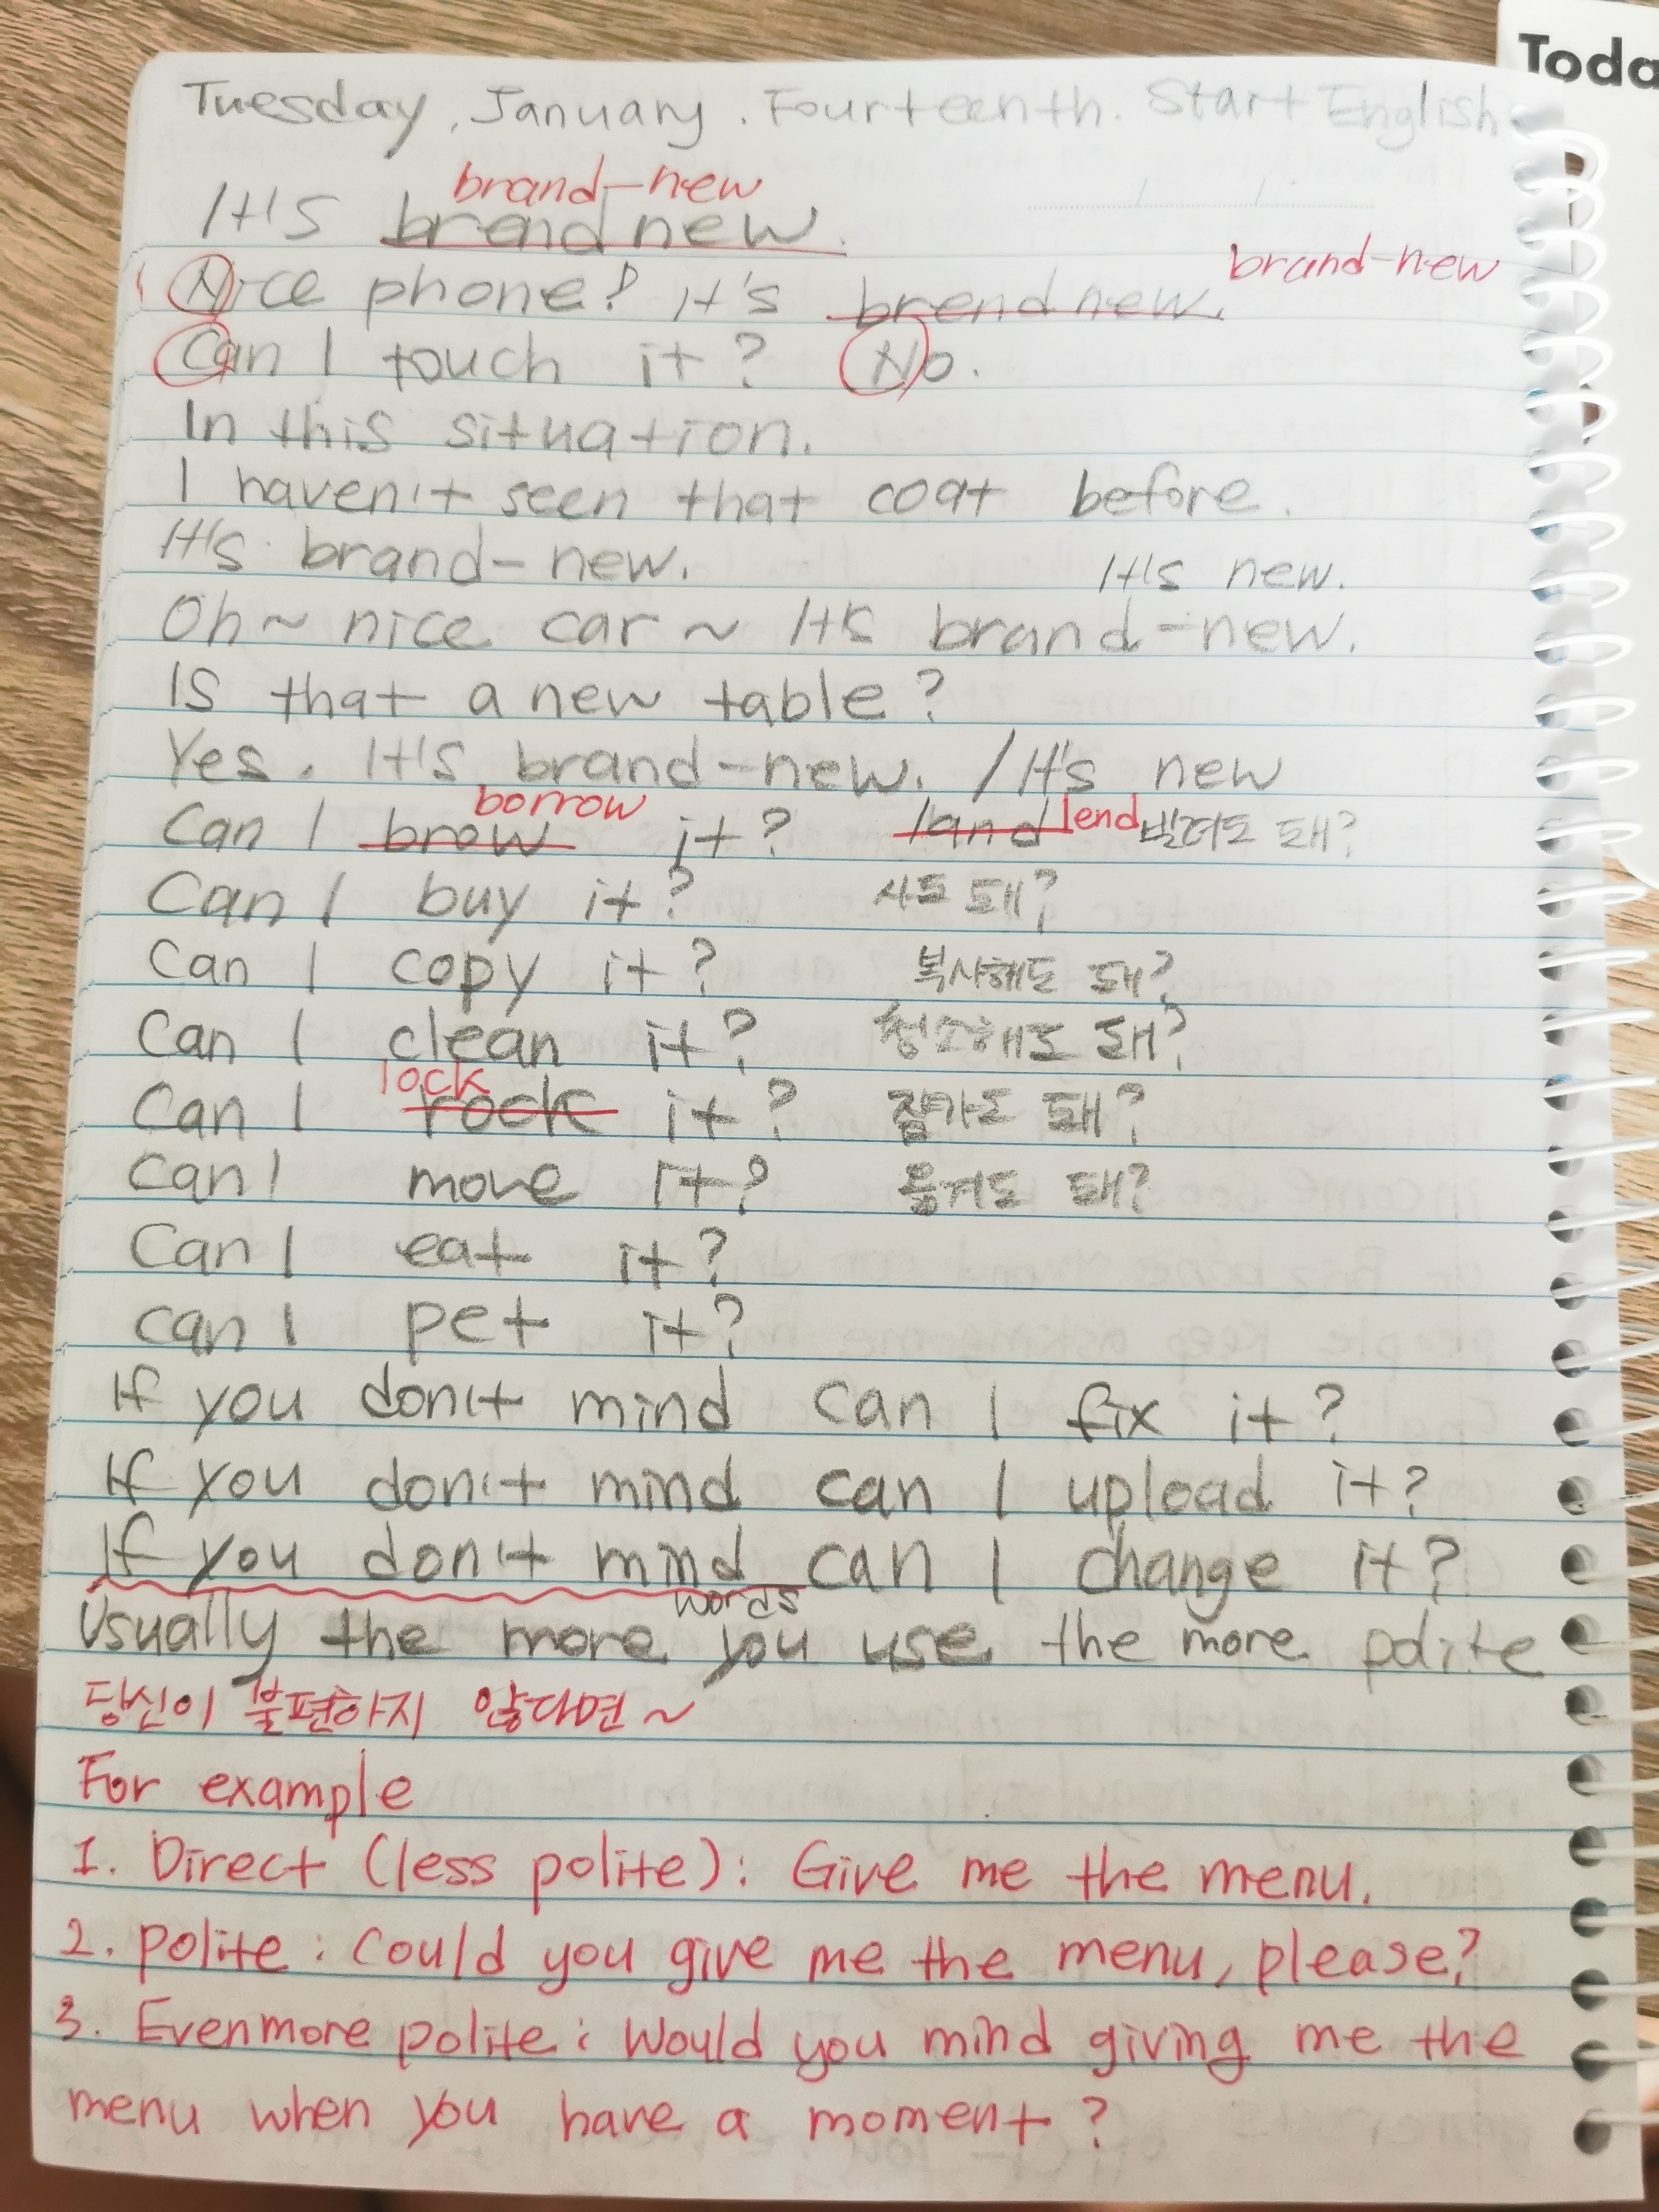 Toda
Tuesday, January. Fourteenth. Start English
brand-new
It's brend new.
brand-new
Nice phone? It's brend new.
Can I touch it? No.
In this situation.
I haven't seen that coat before.
It's brand-new. It's new.
Oh~ nice car~ It's brand-new.
Is that a new table?
Yes. It's brand-new. / It's new
borrow
Can I brow it? land lend 빌려도 돼?
Can I buy it? 사도 돼?
Can I copy it? 복사해도 돼?
Can I clean it? 청소해도 돼?
lock
Can I rock it? 잠가도 돼?
Can I move it? 옮겨도 돼?
Can I eat it?
can I pet it?
If you don't mind can I fix it?
If you don't mind can I upload it?
If you don't mind can I change it?
words
Usually the more you use the more polite
당신이 불편하지 않다면~
For example
1. Direct (less polite): Give me the menu.
2. polite: Could you give me the menu, please?
3. Even more polite: Would you mind giving me the
menu when you have a moment?